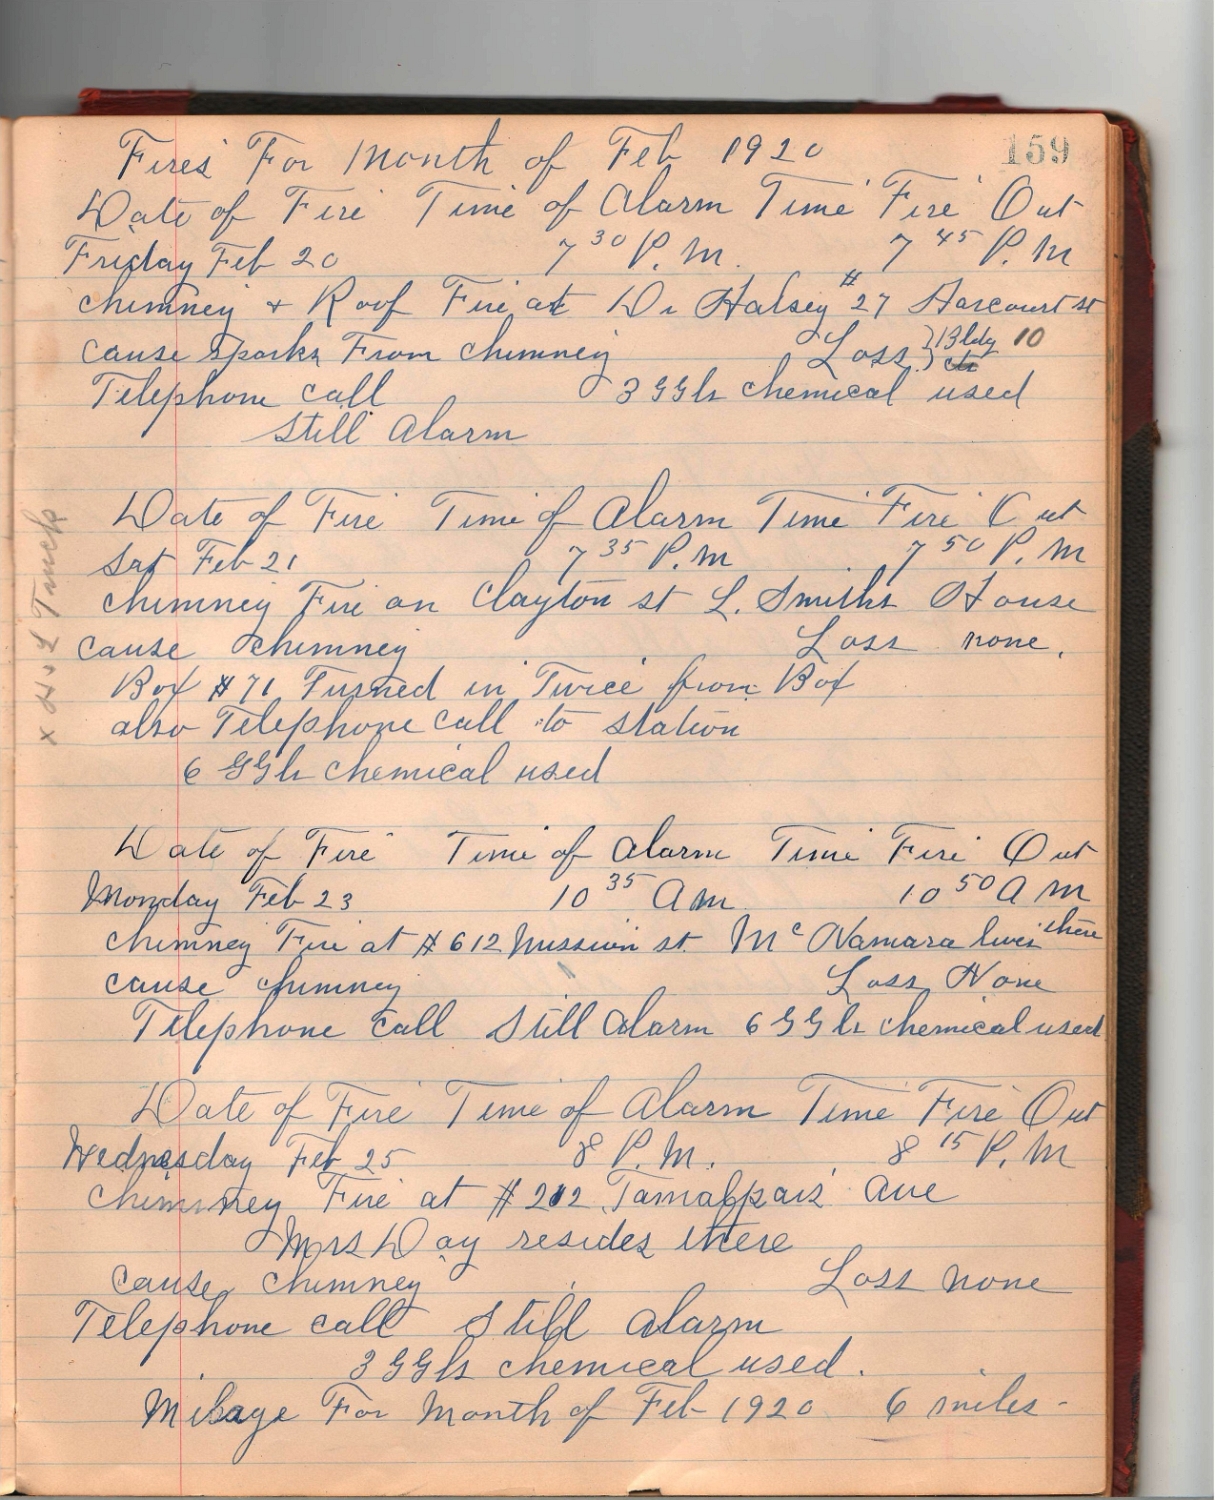 159
Fires For Month of Feb 1920
Date of Fire Time of Alarm Time Fire Out
Friday Feb 20 7 30 P.M. 7 45 P.M
chimney + Roof Fire at Dr Halsey #27 Harcourt st
cause sparks From chimney Loss } Bldg 10
Telephone call 3 GGls chemical used
Still Alarm
Date of Fire Time of Alarm Time Fire Out
Sat Feb 21 7 35 P.M 7 50 P.M
chimney Fire on Clayton st L. Smiths House
cause chimney Loss none.
Box #71 Turned in Twice from Box
also Telephone call to station
6 GGls chemical used
x H & L Truck
Date of Fire Time of Alarm Time Fire Out
Monday Feb 23 10 35 A m 10 50 A m
chimney Fire at #612 Mission st Mc Namara lives there
cause chimney Loss None
Telephone call Still Alarm 6 GGls chemical used
Date of Fire Time of Alarm Time Fire Out
Wednesday Feb 25 8 P.M. 8 15 P.M
chimney Fire at #212 Tamalpais Ave
Mrs Day resides there
cause chimney Loss none
Telephone call Still Alarm
3 GGls chemical used.
Milage For Month of Feb 1920 6 miles -